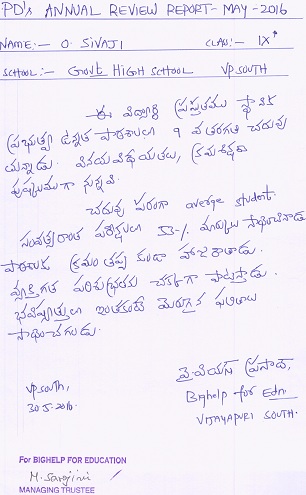 PD's ANNUAL REVIEW REPORT- MAY-2016
NAME:- O. SIVAJI CLASS:- IX
SCHOOL:- GOVT HIGH SCHOOL VP SOUTH
ఈ విద్యార్థి ప్రస్తుతము స్థానిక
ప్రభుత్వ ఉన్నత పాఠశాలలో 9 వ తరగతి చదువు
చున్నాడు. వినయవిధేయతలు, క్రమశిక్షణ
పుష్కలముగా వున్నవి.
చదువు పరంగా average student.
సంవత్సరాంత పరీక్షలలో 53% మార్కులు సాధించినాడు
పాఠశాలకు క్రమం తప్పకుండా హాజరౌతాడు.
వ్యక్తిగత పరిశుభ్రతను చక్కగా పాటిస్తాడు.
భవిష్యత్తులో ఇంతకంటే మెరుగైన ఫలితాలు
సాధించగలడు.
వై.వియస్ ప్రసాద్,
VP South, Bighelp for Edn.
30-5-2016. VIJAYAPURI SOUTH.
For BIGHELP FOR EDUCATION
M. Sarojini
MANAGING TRUSTEE